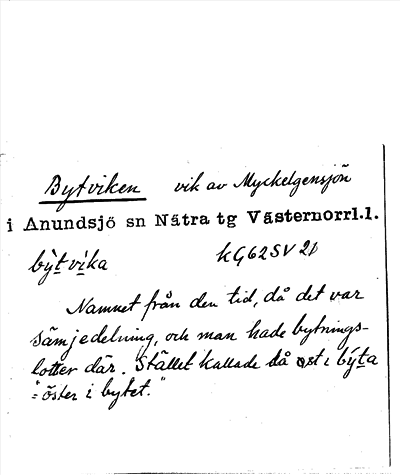 Bytviken vik av Myckelgensjön
i Anundsjö sn Nätra tg Västernorrl.l.
by̱t vi̱ka kG62SV21
Namnet från den tid, då det var
sämjedelning, och man hade bytnings-
lotter där. Stället kallade då ost i by̱ta
"= öster i bytet."